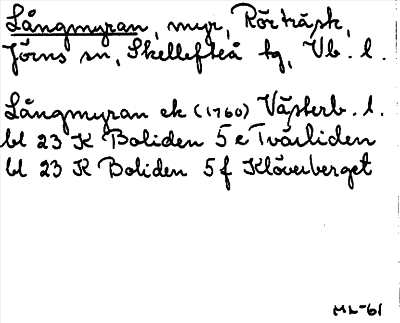 Långmyran, myr, Rörträsk,
Jörns sn, Skellefteå tg, Vb. l.
Långmyran ek (1760) Västerb. l.
bl 23 K Boliden 5 e Tvärliden
bl 23 K Boliden 5 f Klöverberget
ML-61